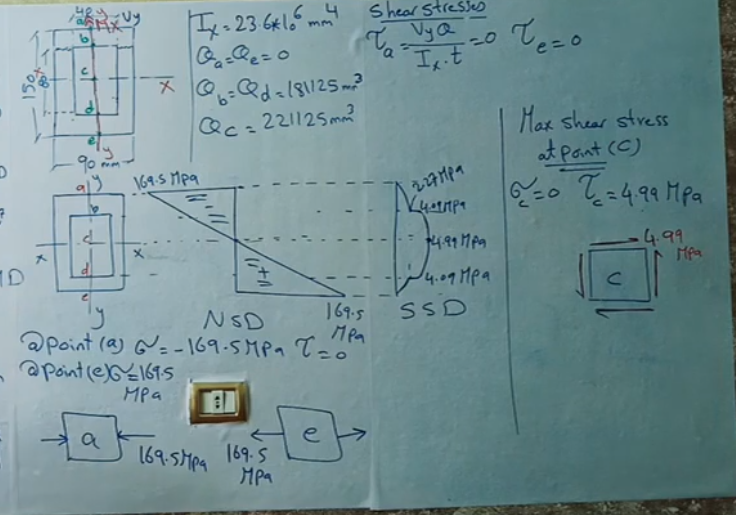 Shear stresses
I_x = 23.6*10^6 mm^4
Q_a = Q_e = 0
Q_b = Q_d = 181125 mm^3
Q_c = 221125 mm^3
τ_a = VyQ / I_x.t = 0 τ_e = 0
Vy
Mx
a
b
c
d
e
y
x
150
90 mm
Max shear stress
at point (C)
σ_c = 0 τ_c = 4.99 MPa
4.99
MPa
C
a y
b
c
d
e
x x
y
169.5 MPa
=
=
= +
169.5
MPa
NSD
2.27 MPa
4.09 MPa
4.99 MPa
4.09 MPa
SSD
MD
@point (a) σ = -169.5 MPa τ = 0
@point (e) σ = 169.5
MPa
a
169.5 MPa
e
169.5
MPa